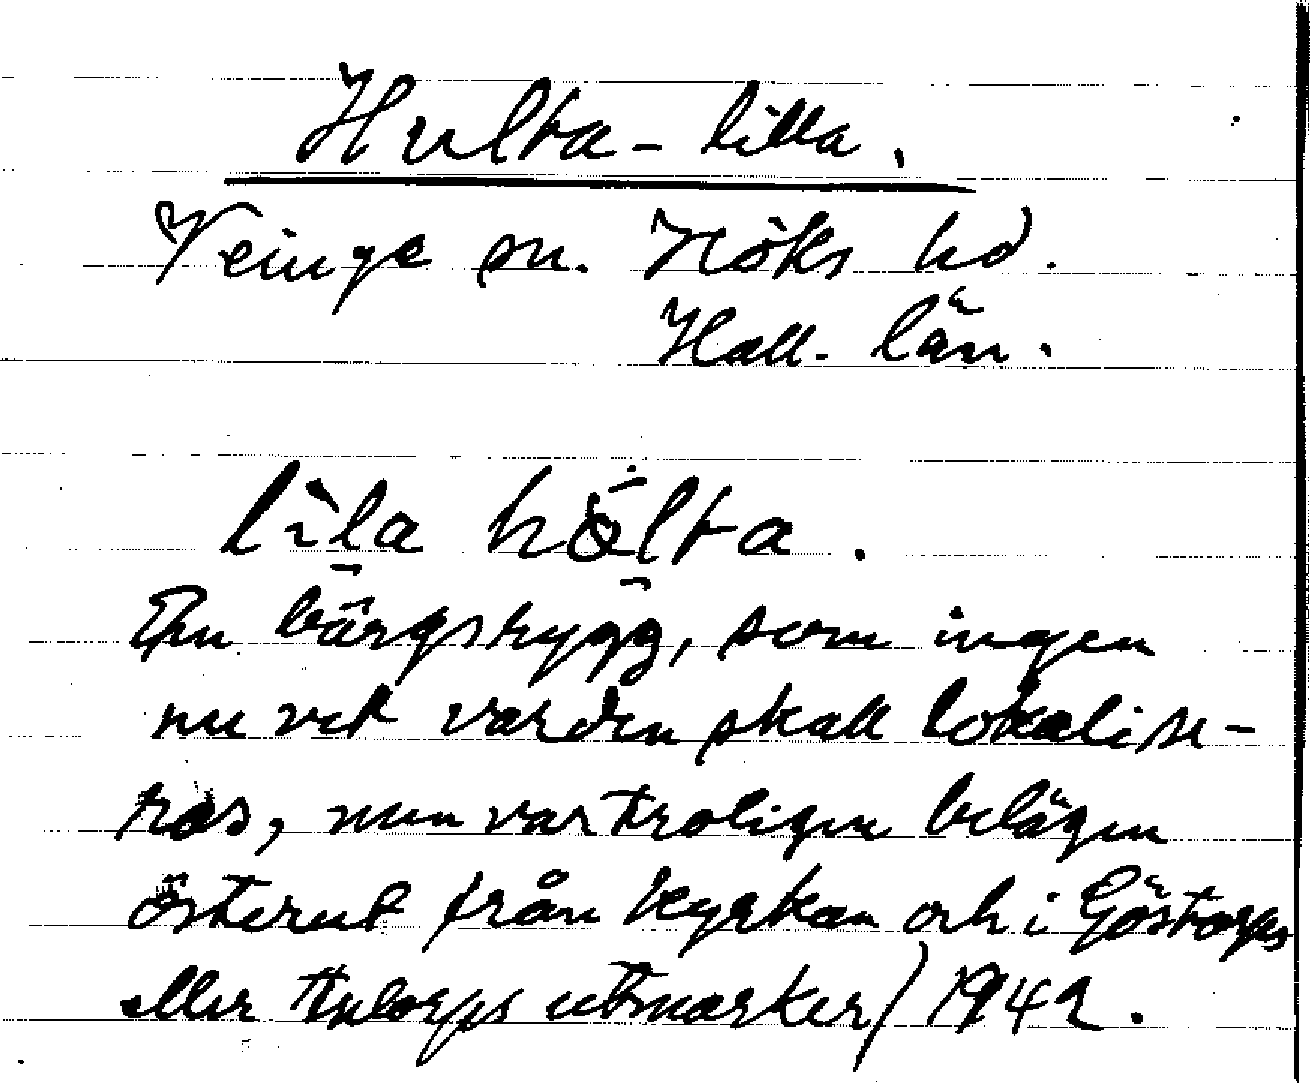 Hulta - lilla.
Veinge sn. Höks hd.
Hall. län.
lila hölta.
En bärgsrygg, som ingen
nu vet varden skall lokalise-
ras, men var troligen belägen
österut från kyrkan och i Göstorps
eller utmarker/ 1942.